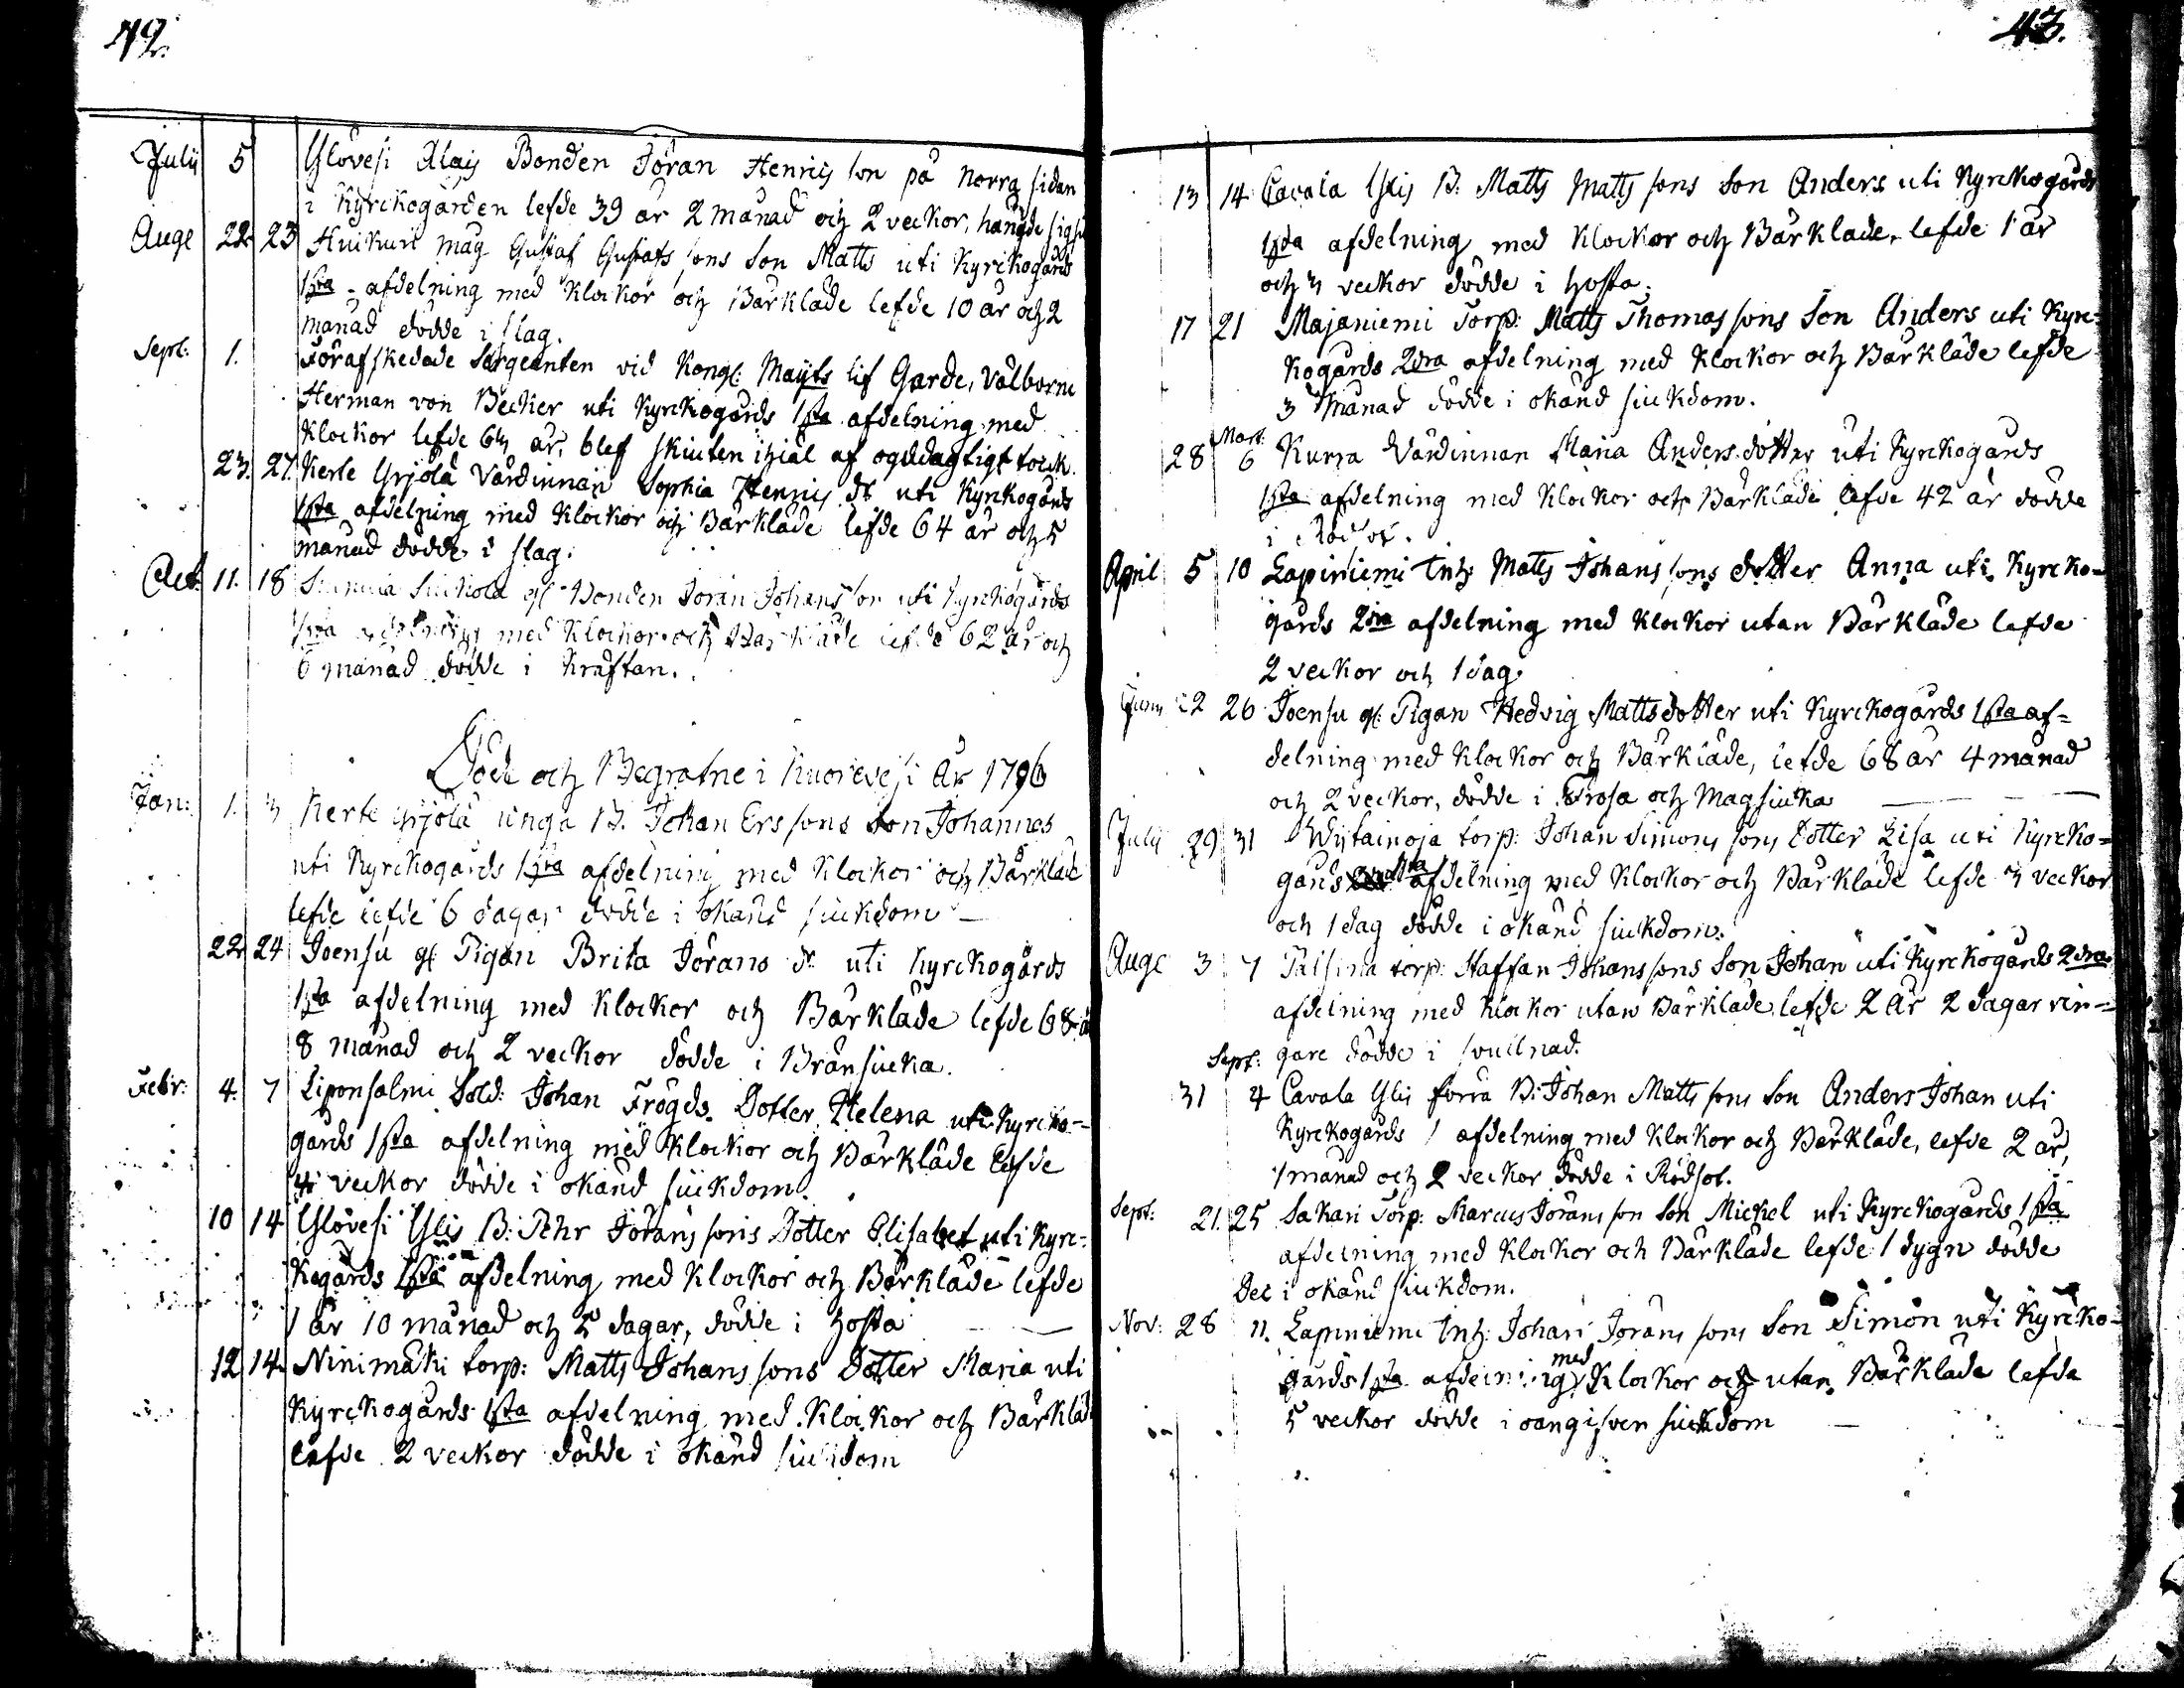 42.
Julii 5 Ylövesi Alais Bonden Jöran Henrics son på norra sidan
i Kyrckogården lefde 39 år 2 månad och 2 veckor, hängde sig
Auge 22 23 Huikuri måg Gustaf Gustafs sons Son Matts uti Kyrckogårds
1sta afdelning med Klockor och Bårkläde lefde 10 år och 2
månad dödde i slag.
Sept: 1. Förafskedade Sargeanten vid Kongl: Maÿts lif Garde, Välborne
Herman von Becker uti Kyrckogårds 1sta afdelning med
Klockor lefde år, blef skiuten ihiäl af
23. 27. Kerte Yrjölä Värdinnan Sophia Henrics dr uti Kyrckogårds
1sta afdelning med Klockor och Bårkläde lefde 64 år och 5
månad dödde i slag.
Oct: 11. 18 gl Bonden Jöran Johans son uti Kyrckogårds
1sta afdelning med Klockor och Bårkläde lefde 62 år och
6 månad dödde i Kräftan.
Döde och Begrafne i Kuorevesi År 1796
Jan: 1. 3 Kerte Yrjölä unga B. Johan Ers sons Son Johannes
uti Kyrckogårds 1sta afdelning med Klockor och Bårkläde
lefde lefde 6 dagar dödde i okänd siuckdom —
22 24 Joensu gl Pigan Brita Jörans dr uti Kyrckogårds
1sta afdelning med Klockor och Bårkläde lefde 68 å
8 månad och 2 veckor dödde i Bränsiucka.
Febr: 4. 7 Liponsalmi Sold: Johan Frögds Dotter Helena uti Kyrcko=
gårds 1sta afdelning med Klockor och Bårkläde lefde
4 veckor dödde i okänd siuckdom.
10 14 Ylövesi Ylis B: Pehr Jörans sons Dotter Elisabet uti Kyrc=
kogårds 1sta afdelning med Klockor och Bårkläde lefde
1 år 10 månad och 5 dagar, dödde i hosta —
12 14. Ninimäki torp: Matts Johans sons Dotter Maria uti
Kyrckogårds 1sta afdelning med Klockor och Bårkläde
lefde 2 veckor dödde i okänd siuckdom
43.
13 14 Cavala Ylis B: Matts Matts sons Son Anders uti Kyrckogårds
1sta afdelning med Klockor och Bårkläde, lefde 1 år
och 3 veckor dödde i hosta.
17 21 Majaniemi Torp: Matts Thomas sons Son Anders uti Kyrc=
kogårds 2dra afdelning med Klockor och Bårkläde lefde
3 månad dödde i okänd siuckdom.
Mart:
28 6 Kurra Värdinnan Maria Anders dotter uti Kyrckogårds
1sta afdelning med Klockor och Bårkläde lefde 42 år dödde
i Rödsot.
April 5 10 Lapiniemi Inh: Matts Johans sons dotter Anna uti Kyrcko=
gårds 2dra afdelning med Klockor utan Bårkläde lefde
2 veckor och 1 dag.
Junii 22 26 Joensu gl: Pigan Hedvig Matts dotter uti Kyrckogårds 1sta af=
delning med Klockor och Bårkläde, lefde 68 år 4 månad
och 2 veckor, dödde i Frosa och Magsiucka —
Julii 29 31 Wiitainoja torp: Johan Simons sons Dotter Lisa uti Kyrcko=
gårds 1sta afdelning med Klockor och Bårkläde lefde 3 veckor
och 1 dag dödde i okänd siuckdom.
Auge 3 7 Palsina torp: Staffan Johans sons Son Johan uti Kyrckogårds 2dra
afdelning med Klockor utan Bårkläde lefde 2 år 2 dagar rin=
Sept: gare dödde i svullnad.
31 4 Cavala Ylis förra B: Johan Matts sons Son Anders Johan uti
Kyrckogårds 1 afdelning med Klockor och Bårkläde, lefde 2 år,
1 månad och 2 veckor dödde i Rödsot.
Sept: 21. 25 Sakari Torp: Marcus Jörans son Son Mickel uti Kyrckogårds 1sta
afdelning med Klockor och Bårkläde lefde 1 dygn dödde
Dec i okänd siuckdom.
Nov: 28 11. Lapiniemi Inh: Johan Jörans sons Son Simon uti Kyrcko=
gårds 1sta afdelning med Klockor och utan Bårkläde lefde
5 veckor dödde i oangifven siuckdom —